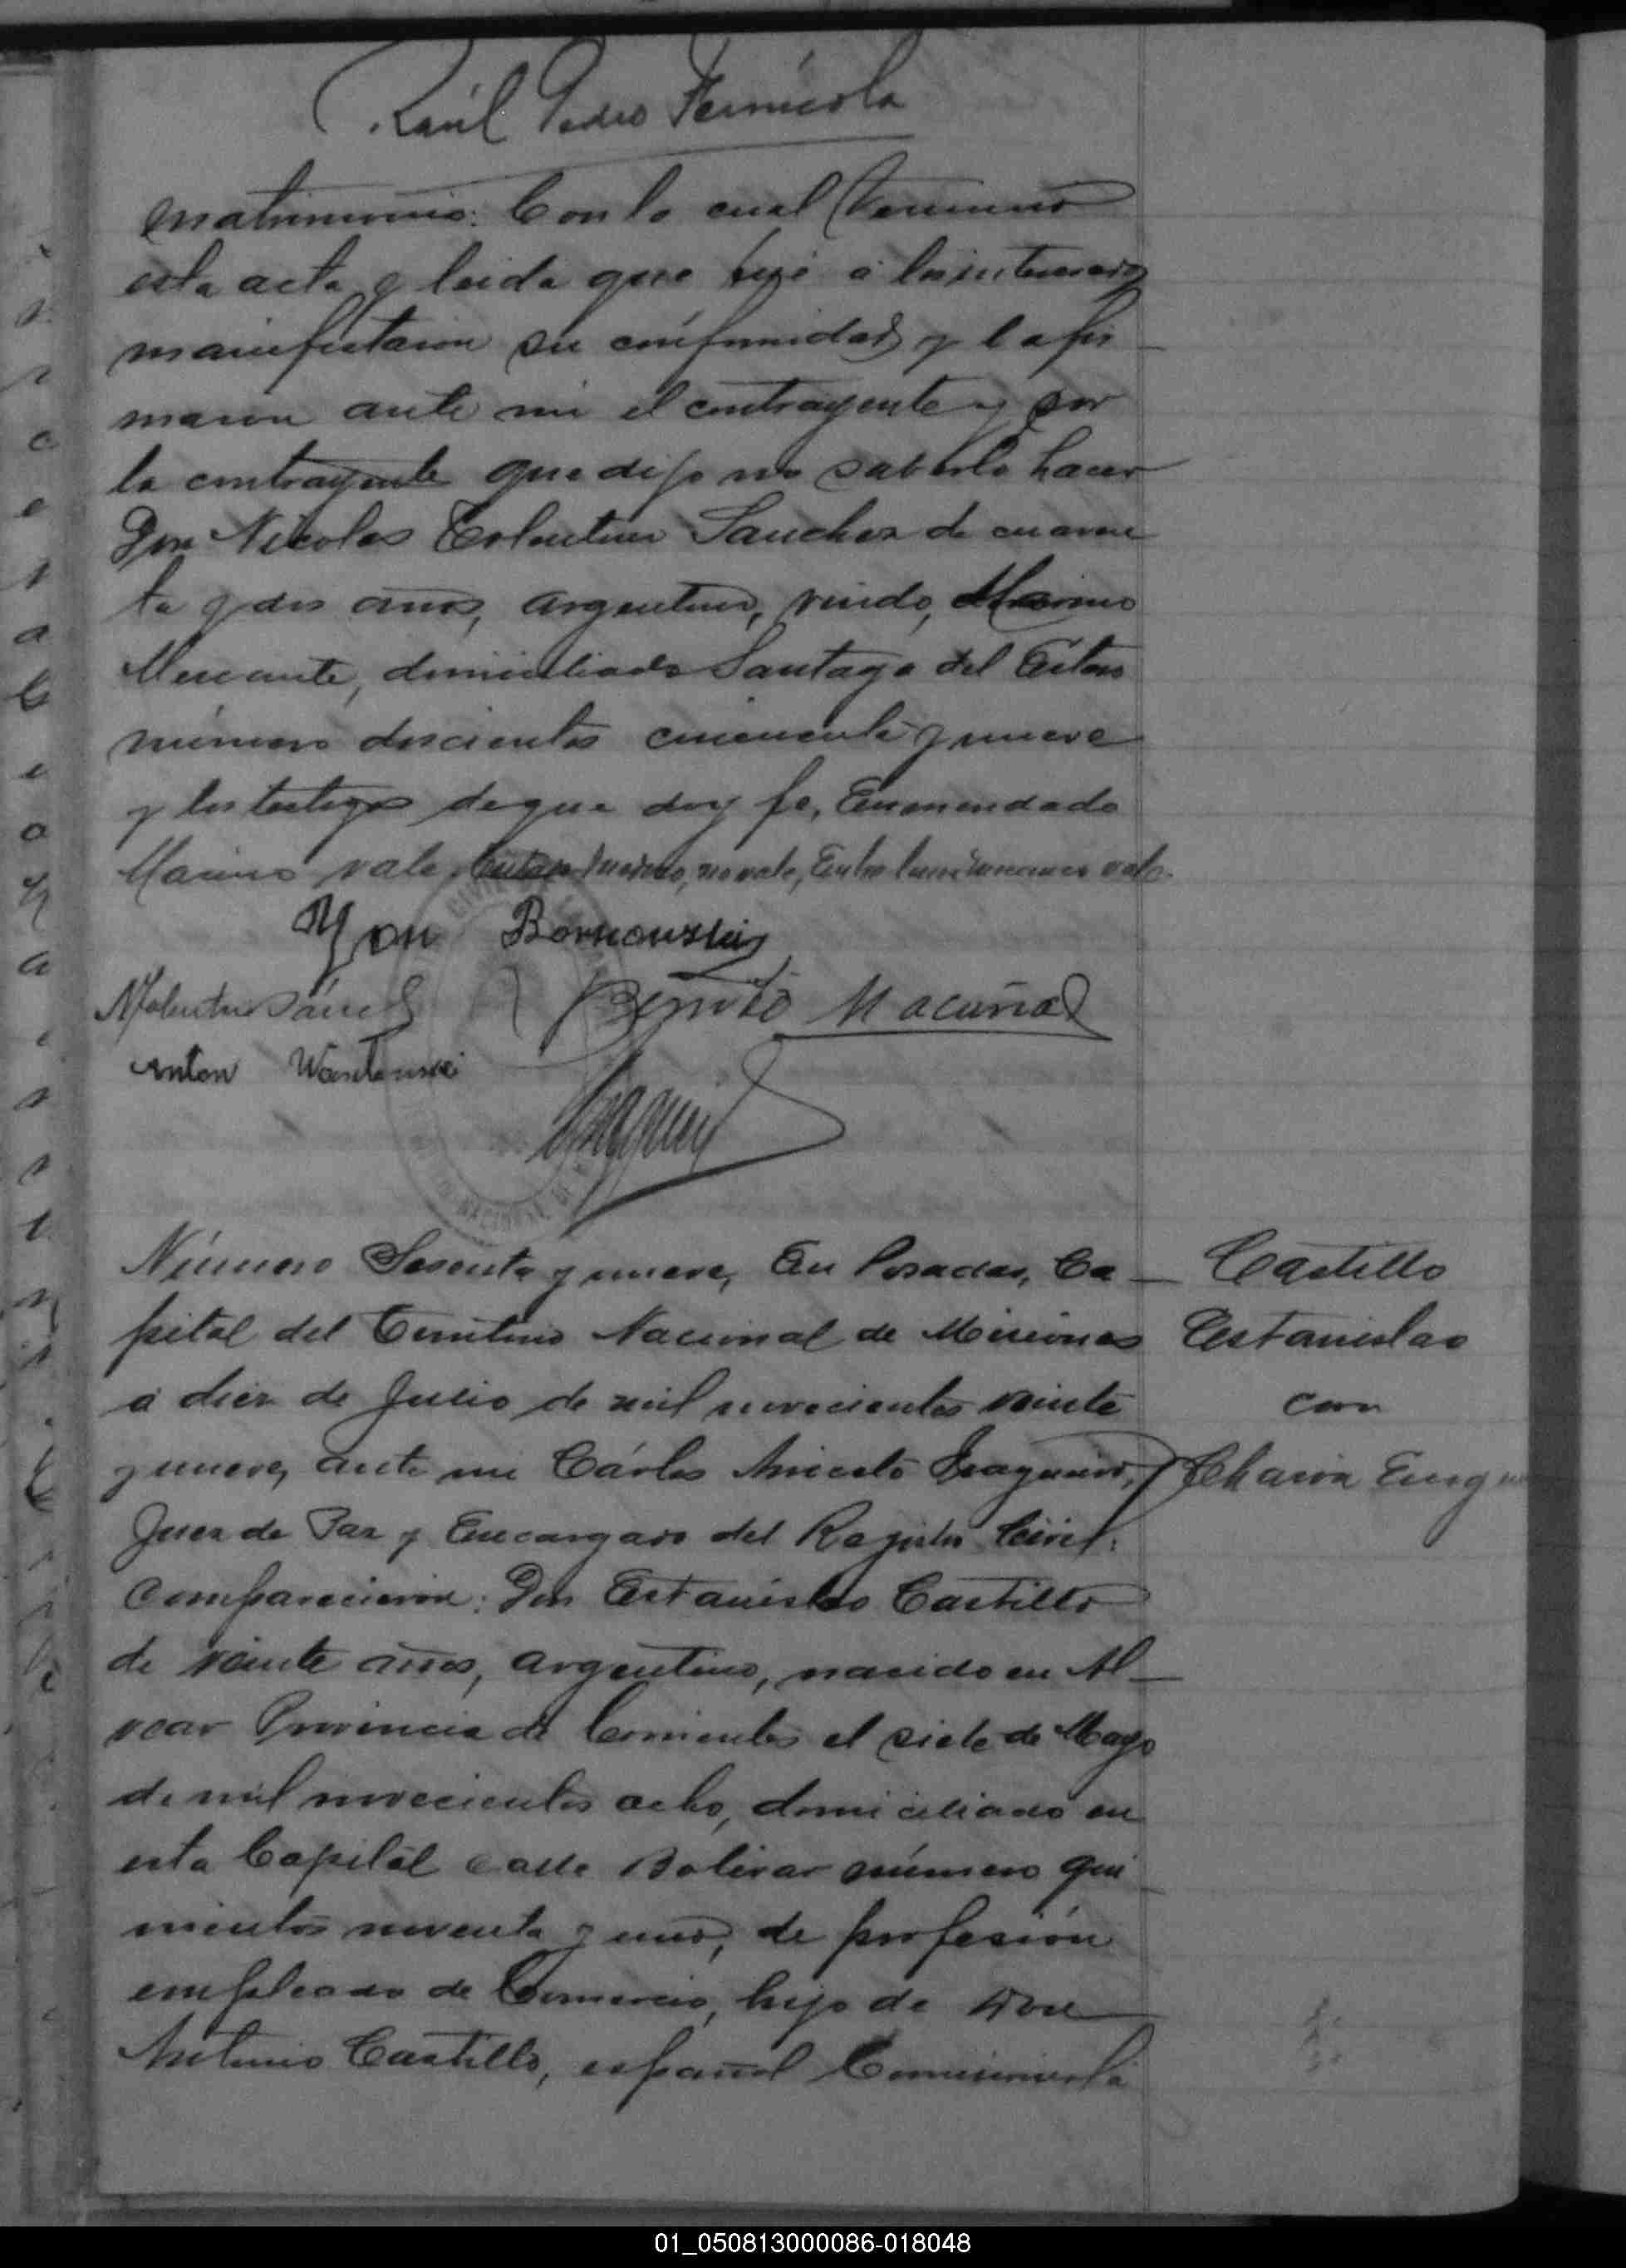 Raúl Pedro
matrimonio: Con lo cual terminó
esta acta y leida que fué á los interesados
manifestaron su conformidad y la fir
maron ante mi el contrayente y por
la contrayente que dijo no saberlo hacer
Don Nicolas Tolentino Sanchez de cuaren
ta y dos años, argentino, viudo, Marino
Mercante, domiciliado Santiago del Estero
número doscientos cincuenta y nueve
y los testigos de que doy fe, Enmendado
Marino vale, no vale, Entre lineas vale.
Benito
Anton
Número Sesenta y nueve, En Posadas, Ca
pital del Territorio Nacional de Misiones
á diez de Julio de mil novecientos veinte
y nueve, ante mi Cárlos Aniceto
Juez de Paz y Encargado del Registro Civil:
comparecieron: Don Estanislao Castillo
de veinte años, argentino, nacido en Al
vear Provincia de Corrientes el siete de Mayo
de mil novecientos ocho, domiciliado en
esta Capital calle Bolivar número qui
nientos noventa y uno, de profesión
empleado de Comercio, hijo de Don
Antonio Castillo, español Comisionista
Castillo
Estanislao
con
01_050813000086-018048